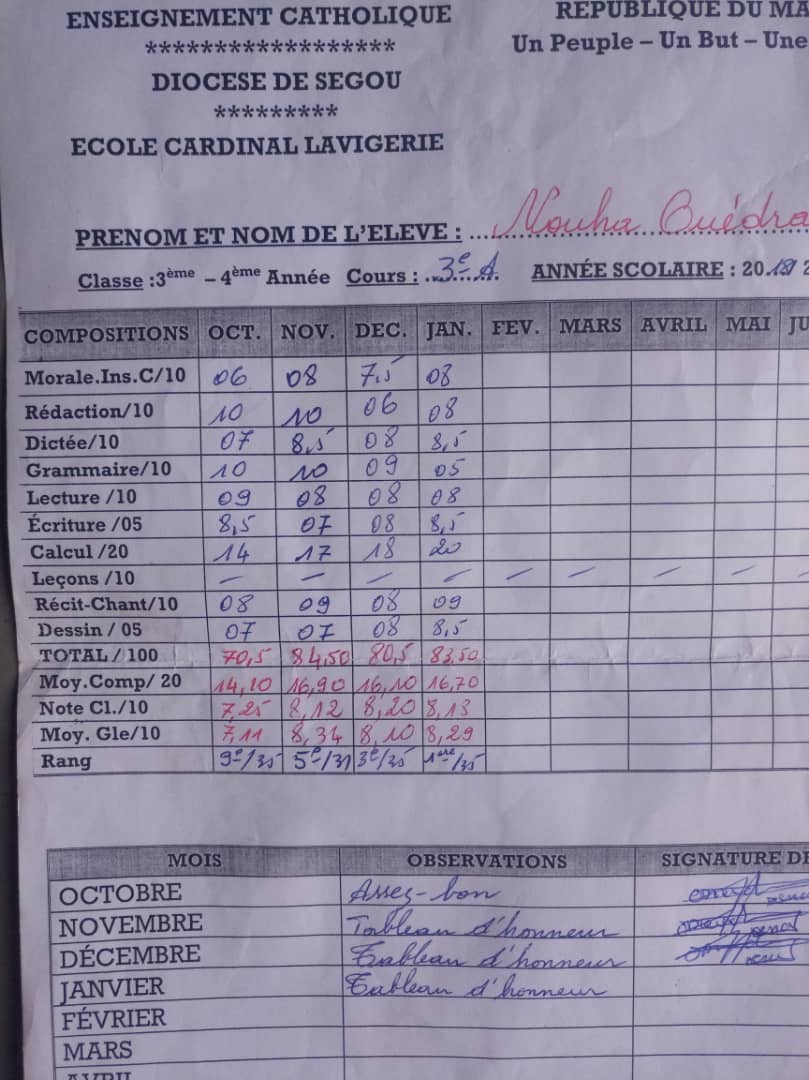 ENSEIGNEMENT CATHOLIQUE
******************
DIOCESE DE SEGOU
*********
ECOLE CARDINAL LAVIGERIE
REPUBLIQUE DU MA
Un Peuple – Un But – Une
PRENOM ET NOM DE L'ELEVE : Nouha Ouédra
Classe :3ème – 4ème Année Cours : 3e A. ANNÉE SCOLAIRE : 2019 2
COMPOSITIONS OCT. NOV. DEC. JAN. FEV. MARS AVRIL MAI JU
Morale.Ins.C/10 06 08 7,5 08
Rédaction/10 10 10 06 08
Dictée/10 07 8,5 08 8,5
Grammaire/10 10 10 09 05
Lecture /10 09 08 08 08
Écriture /05 8,5 07 08 8,5
Calcul /20 14 17 18 20
Leçons /10 – – – – – – – –
Récit-Chant/10 08 09 08 09
Dessin / 05 07 07 08 8,5
TOTAL / 100 70,5 84,50 80,5 83,50
Moy.Comp/ 20 14,10 16,90 16,10 16,70
Note Cl./10 7,25 8,12 8,20 8,13
Moy. Gle/10 7,11 8,34 8,10 8,29
Rang 9e/35 5e/31 3e/35 1ere/35
MOIS OBSERVATIONS SIGNATURE DE
OCTOBRE Assez-bon
NOVEMBRE Tableau d'honneur
DÉCEMBRE Tableau d'honneur
JANVIER Tableau d'honneur
FÉVRIER
MARS
AVRIL